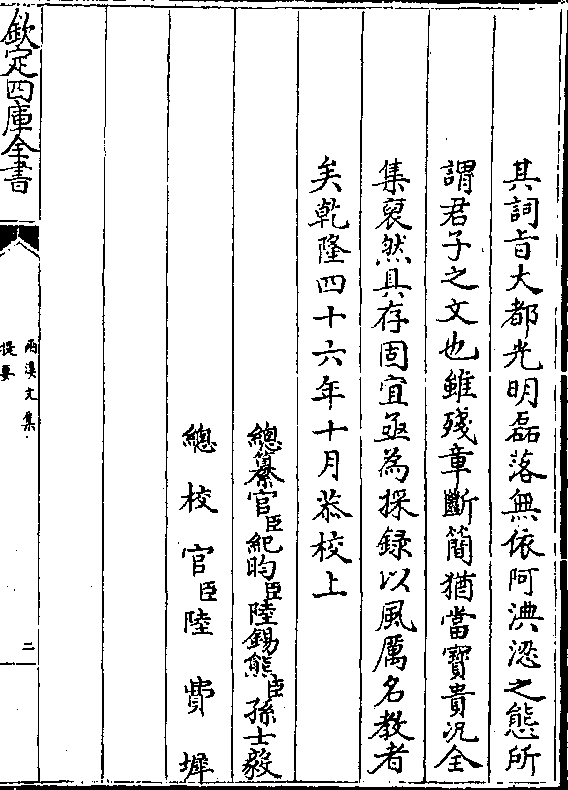 其詞旨大都光明磊落無依阿淟涊之態所
謂君子之文也雖殘章斷簡猶當寳貴况全
集裒然具存固宜亟為採録以風厲名教者
矣乾隆四十六年十月恭校上
總纂官臣紀昀臣陸錫熊臣孫士毅
總校官臣陸費墀
欽定四庫全書
兩溪文集
提要
二